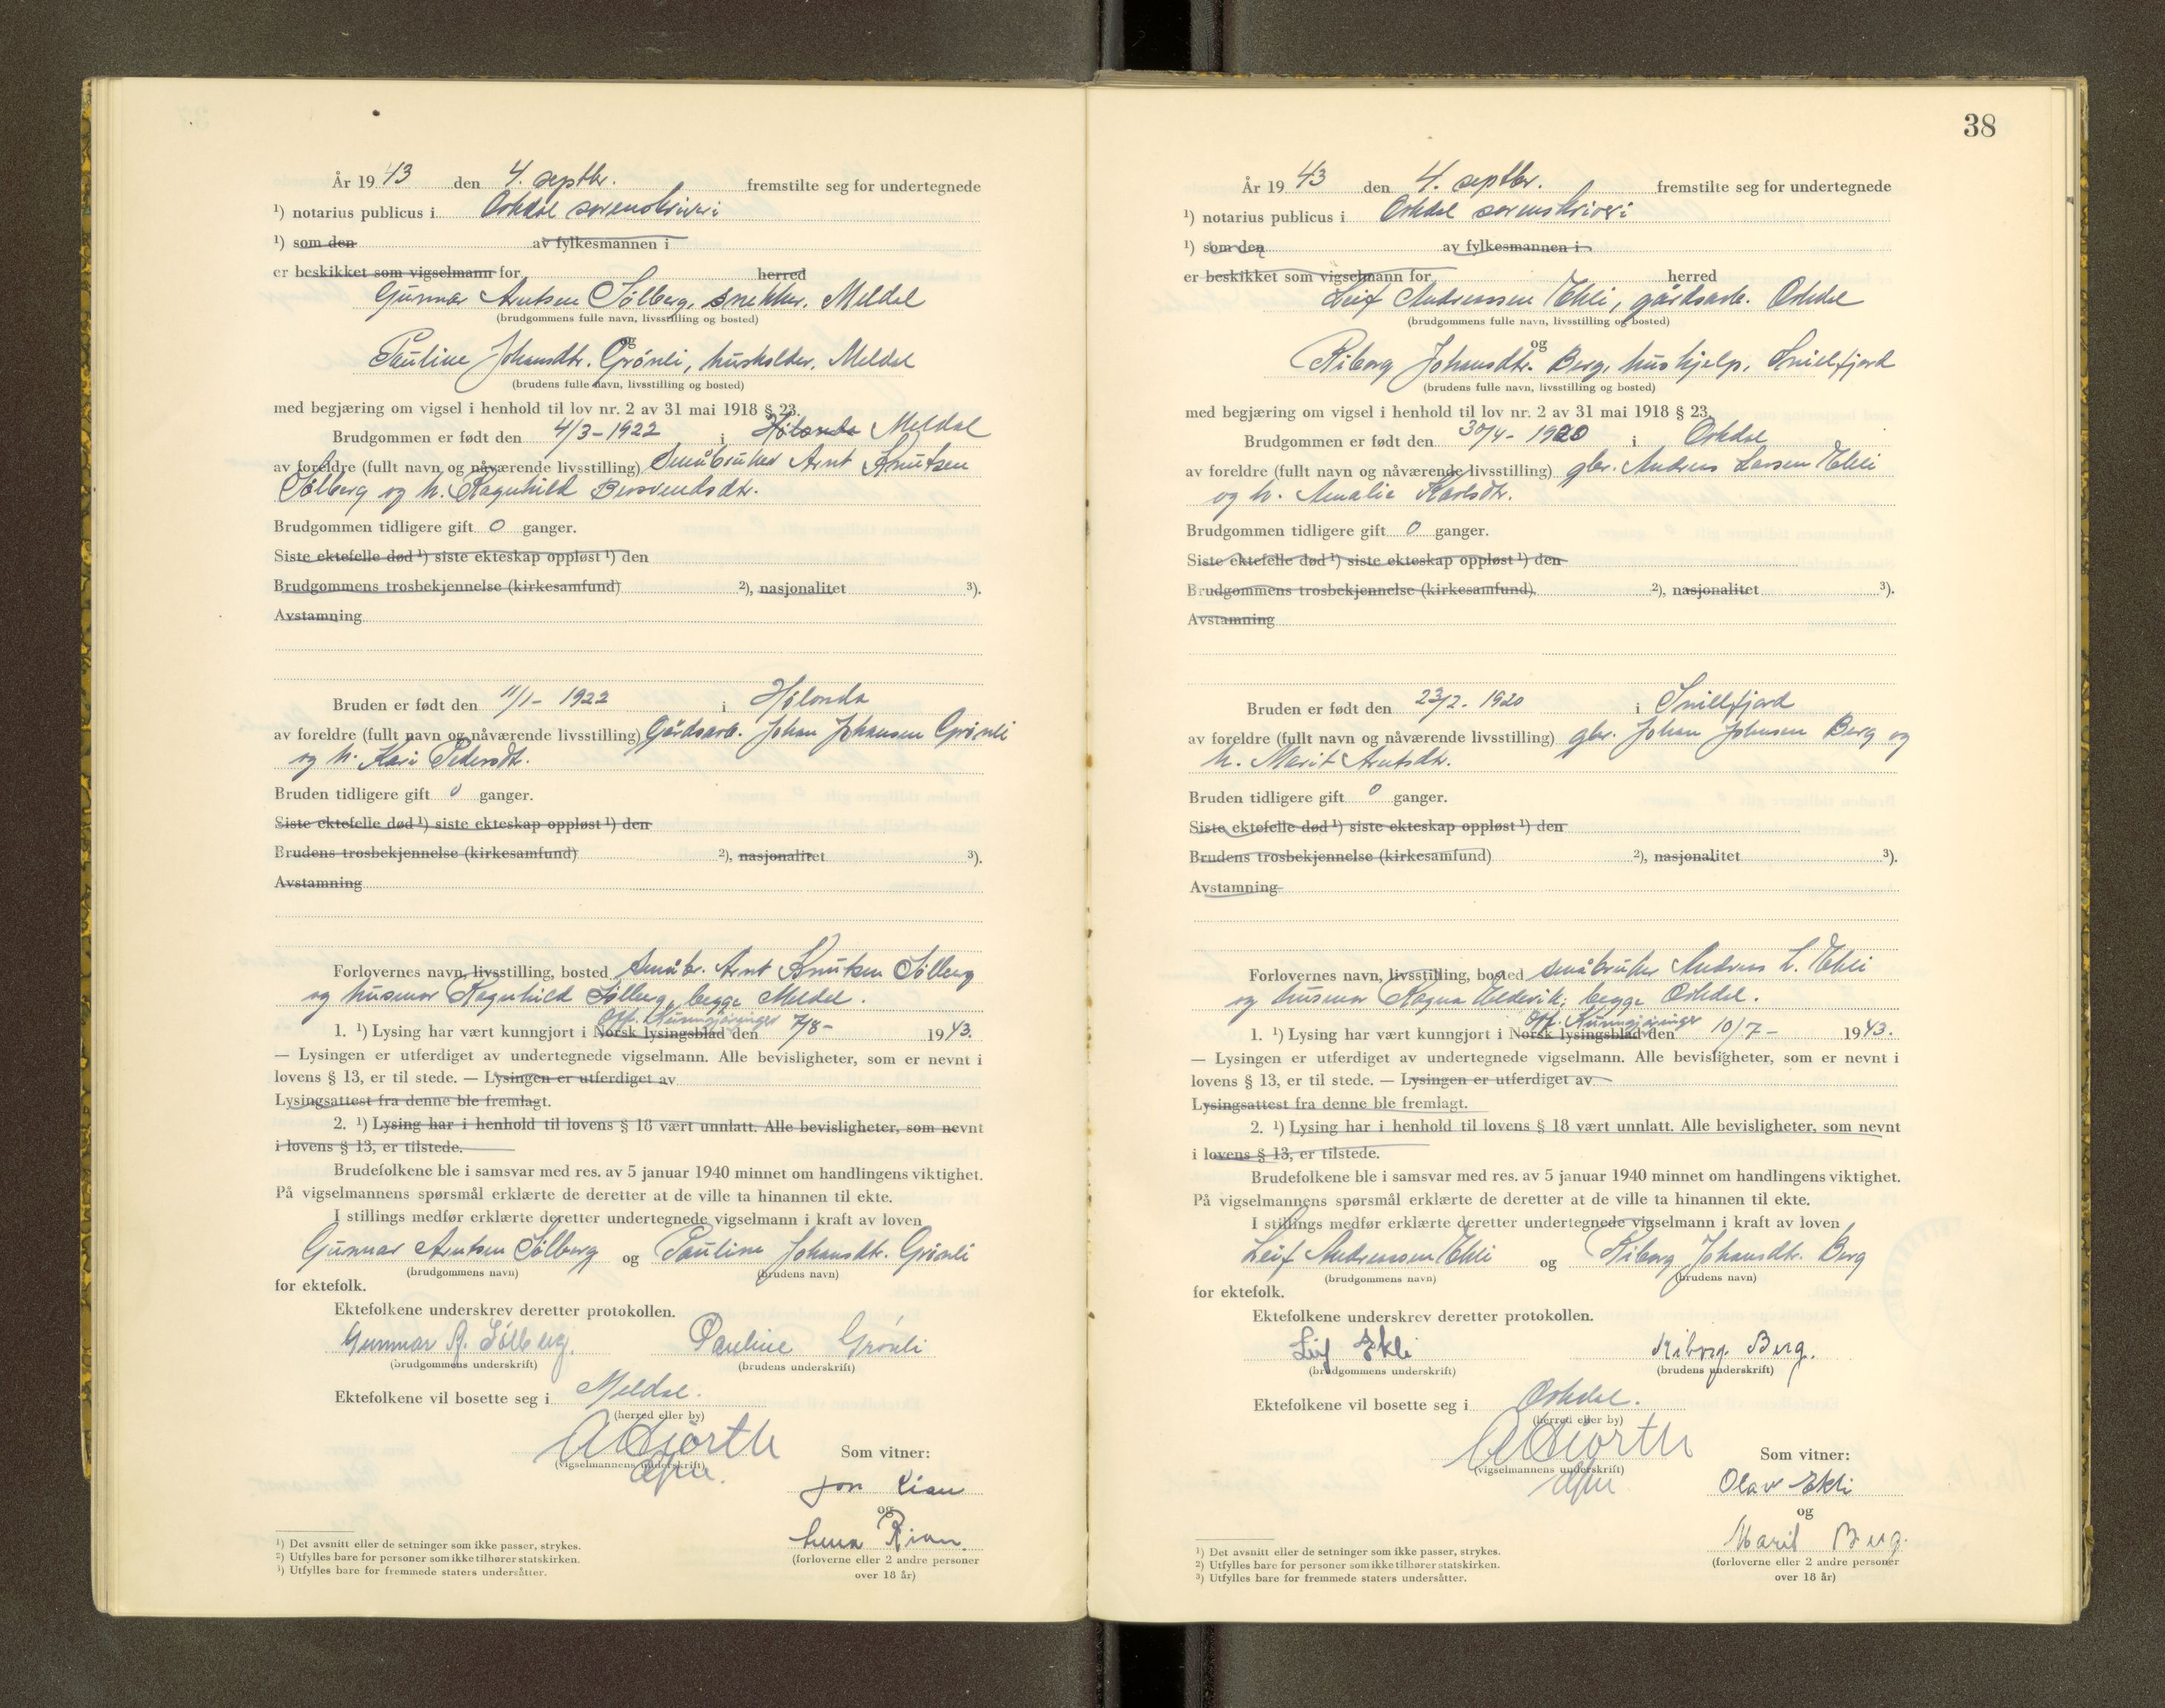 År 1943 den 4. septbr. fremstilte seg for undertegnede
¹) notarius publicus i Orkdal sorenskriveri
¹) som den av fylkesmannen i
er beskikket som vigselmann for herred
Gunnar Arntsen Sølberg, snekker, Meldal
(brudgommens fulle navn, livsstilling og bosted)
og
Pauline Johansdtr. Grønli, husholder, Meldal
(brudens fulle navn, livsstilling og bosted)
med begjæring om vigsel i henhold til lov nr. 2 av 31 mai 1918 § 23.
Brudgommen er født den 4/3-1922 i Hølonda Meldal
av foreldre (fullt navn og nåværende livsstilling) Småbruker Arnt Knutsen
Sølberg og h. Ragnhild Bersvendsdtr.
Brudgommen tidligere gift 0 ganger.
Siste ektefelle død ¹) siste ekteskap oppløst ¹) den
Brudgommens trosbekjennelse (kirkesamfund) ²), nasjonalitet ³).
Avstamning
Bruden er født den 11/1- 1922 i Hølonda
av foreldre (fullt navn og nåværende livsstilling) Gårdsarb. Johan Johansen Grønli
og h. Kari Pedersdtr.
Bruden tidligere gift 0 ganger.
Siste ektefelle død ¹) siste ekteskap oppløst ¹) den
Brudens trosbekjennelse (kirkesamfund) ²), nasjonalitet ³).
Avstamning
Forlovernes navn, livsstilling, bosted Småbr. Arnt Knutsen Sølberg
og husmor Ragnhild Sølberg, begge Meldal.
Off. Kunngjøringer
1. ¹) Lysing har vært kunngjort i Norsk lysingsblad den 7/8- 1943.
— Lysingen er utferdiget av undertegnede vigselmann. Alle bevisligheter, som er nevnt i
lovens § 13, er til stede. — Lysingen er utferdiget av
Lysingsattest fra denne ble fremlagt.
2. ¹) Lysing har i henhold til lovens § 18 vært unnlatt. Alle bevisligheter, som nevnt
i lovens § 13, er tilstede.
Brudefolkene ble i samsvar med res. av 5 januar 1940 minnet om handlingens viktighet.
På vigselmannens spørsmål erklærte de deretter at de ville ta hinannen til ekte.
I stillings medfør erklærte deretter undertegnede vigselmann i kraft av loven
Gunnar Arntsen Sølberg og Pauline Johansdtr. Grønli
(brudgommens navn) (brudens navn)
for ektefolk.
Ektefolkene underskrev deretter protokollen.
Gunnar A. Sølberg. Pauline Grønli
(brudgommens underskrift) (brudens underskrift)
Ektefolkene vil bosette seg i Meldal.
(herred eller by)
(vigselmannens underskrift)
Som vitner:
Jon Rian
og
Rian
(forloverne eller 2 andre personer
over 18 år)
¹) Det avsnitt eller de setninger som ikke passer, strykes.
²) Utfylles bare for personer som ikke tilhører statskirken.
³) Utfylles bare for fremmede staters undersåtter.
38
År 1943 den 4. septbr. fremstilte seg for undertegnede
¹) notarius publicus i Orkdal sorenskriveri
¹) som den av fylkesmannen i
er beskikket som vigselmann for herred
Leif Andreassen Ekli, gårdsarb. Orkdal
(brudgommens fulle navn, livsstilling og bosted)
og
Riborg Johansdtr. Berg, hushjelp, Snillfjord
(brudens fulle navn, livsstilling og bosted)
med begjæring om vigsel i henhold til lov nr. 2 av 31 mai 1918 § 23.
Brudgommen er født den 30/4- 1920 i Orkdal
av foreldre (fullt navn og nåværende livsstilling) gbr. Andreas Larsen Ekli
og h. Amalie Karlsdtr.
Brudgommen tidligere gift 0 ganger.
Siste ektefelle død ¹) siste ekteskap oppløst ¹) den
Brudgommens trosbekjennelse (kirkesamfund) ²), nasjonalitet ³).
Avstamning
Bruden er født den 23/2. 1920 i Snillfjord
av foreldre (fullt navn og nåværende livsstilling) gbr. Johan Johnsen Berg og
h. Marit Arntsdtr.
Bruden tidligere gift 0 ganger.
Siste ektefelle død ¹) siste ekteskap oppløst ¹) den
Brudens trosbekjennelse (kirkesamfund) ²), nasjonalitet ³).
Avstamning
Forlovernes navn, livsstilling, bosted småbruker Andreas L. Ekli
og husmor Ragna Eldevik, begge Orkdal.
Off. Kunngjøringer
1. ¹) Lysing har vært kunngjort i Norsk lysingsblad den 10/7- 1943.
— Lysingen er utferdiget av undertegnede vigselmann. Alle bevisligheter, som er nevnt i
lovens § 13, er til stede. — Lysingen er utferdiget av
Lysingsattest fra denne ble fremlagt.
2. ¹) Lysing har i henhold til lovens § 18 vært unnlatt. Alle bevisligheter, som nevnt
i lovens § 13, er tilstede.
Brudefolkene ble i samsvar med res. av 5 januar 1940 minnet om handlingens viktighet.
På vigselmannens spørsmål erklærte de deretter at de ville ta hinannen til ekte.
I stillings medfør erklærte deretter undertegnede vigselmann i kraft av loven
Leif Andreassen Ekli og Riborg Johansdtr. Berg
(brudgommens navn) (brudens navn)
for ektefolk.
Ektefolkene underskrev deretter protokollen.
Leif Ekli Riborg Berg.
(brudgommens underskrift) (brudens underskrift)
Ektefolkene vil bosette seg i Orkdal.
(herred eller by)
(vigselmannens underskrift)
Som vitner:
Olav Ekli
og
Marit Berg.
(forloverne eller 2 andre personer
over 18 år)
¹) Det avsnitt eller de setninger som ikke passer, strykes.
²) Utfylles bare for personer som ikke tilhører statskirken.
³) Utfylles bare for fremmede staters undersåtter.